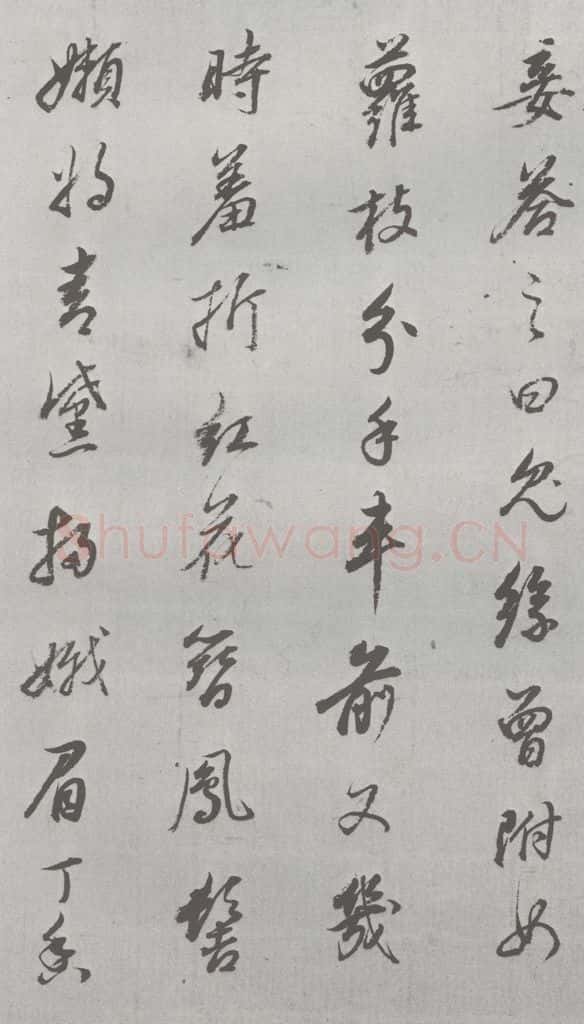 妾荅之曰兔絲曾附女
蘿枝分手車前又幾
時羞折紅花簪鳳髻
嬾將青黛掃娥眉丁香
Shufawang.CN